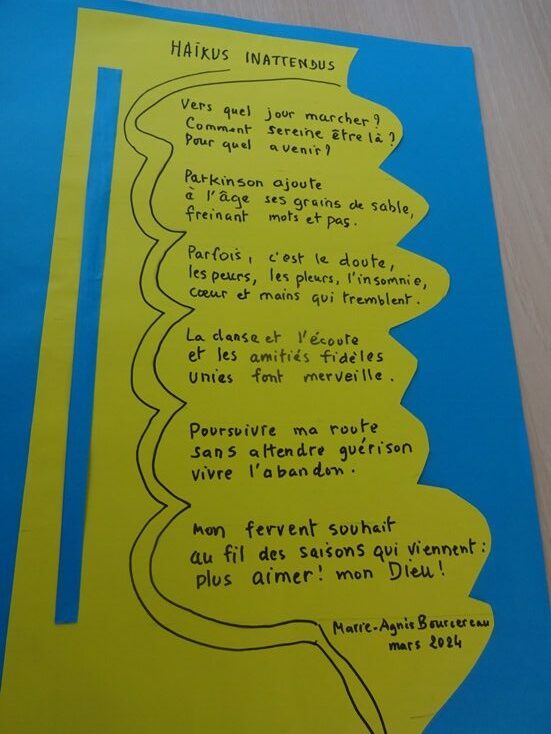 HAÏKUS INATTENDUS
Vers quel jour marcher ?
Comment sereine être là ?
Pour quel avenir ?
Parkinson ajoute
à l'âge ses grains de sable,
freinant mots et pas.
Parfois, c'est le doute,
les peurs, les pleurs, l'insomnie,
cœur et mains qui tremblent.
La danse et l'écoute
et les amitiés fidèles
unies font merveille.
Poursuivre ma route
sans attendre guérison
vivre l'abandon.
Mon fervent souhait
au fil des saisons qui viennent :
plus aimer ! mon Dieu !
Marie-Agnès Bourcereau
mars 2024